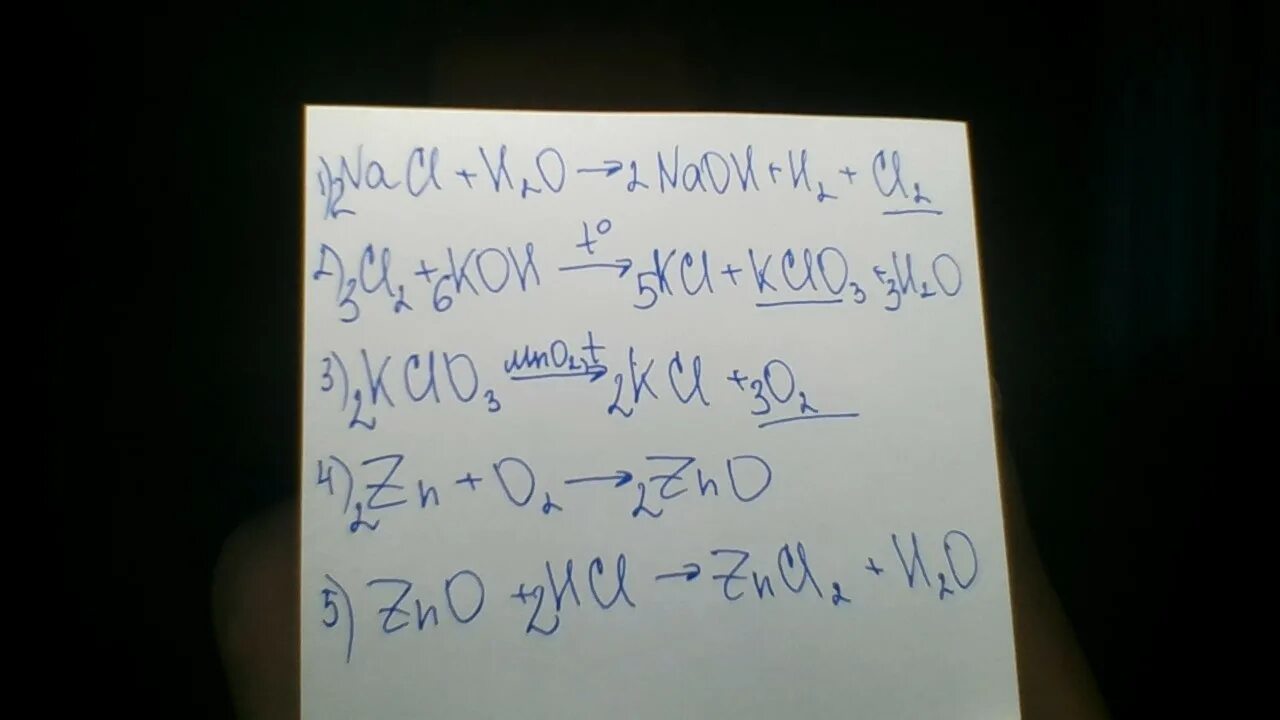 1) 2NaCl + H₂O → 2NaOH + H₂ + Cl₂
2) 3Cl₂ + 6KOH t° → 5KCl + KClO₃ + 3H₂O
3) 2KClO₃ MnO₂, t → 2KCl + 3O₂
4) 2Zn + O₂ → 2ZnO
5) ZnO + 2HCl → ZnCl₂ + H₂O